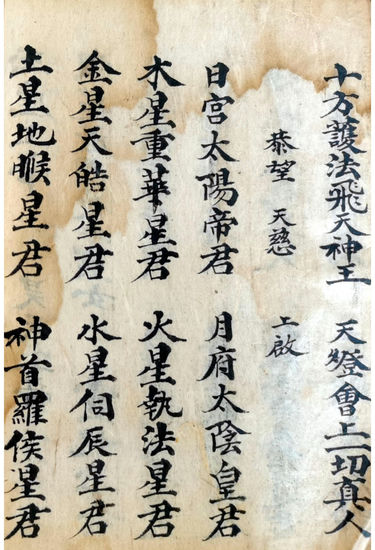 十方護法飛天神王　天燈會上一切真人
恭望　天慈　上啟
日宮太陽帝君　月府太陰皇君
木星重華星君　火星執法星君
金星天皓星君　水星伺辰星君
土星地睺星君　神首羅侯星君